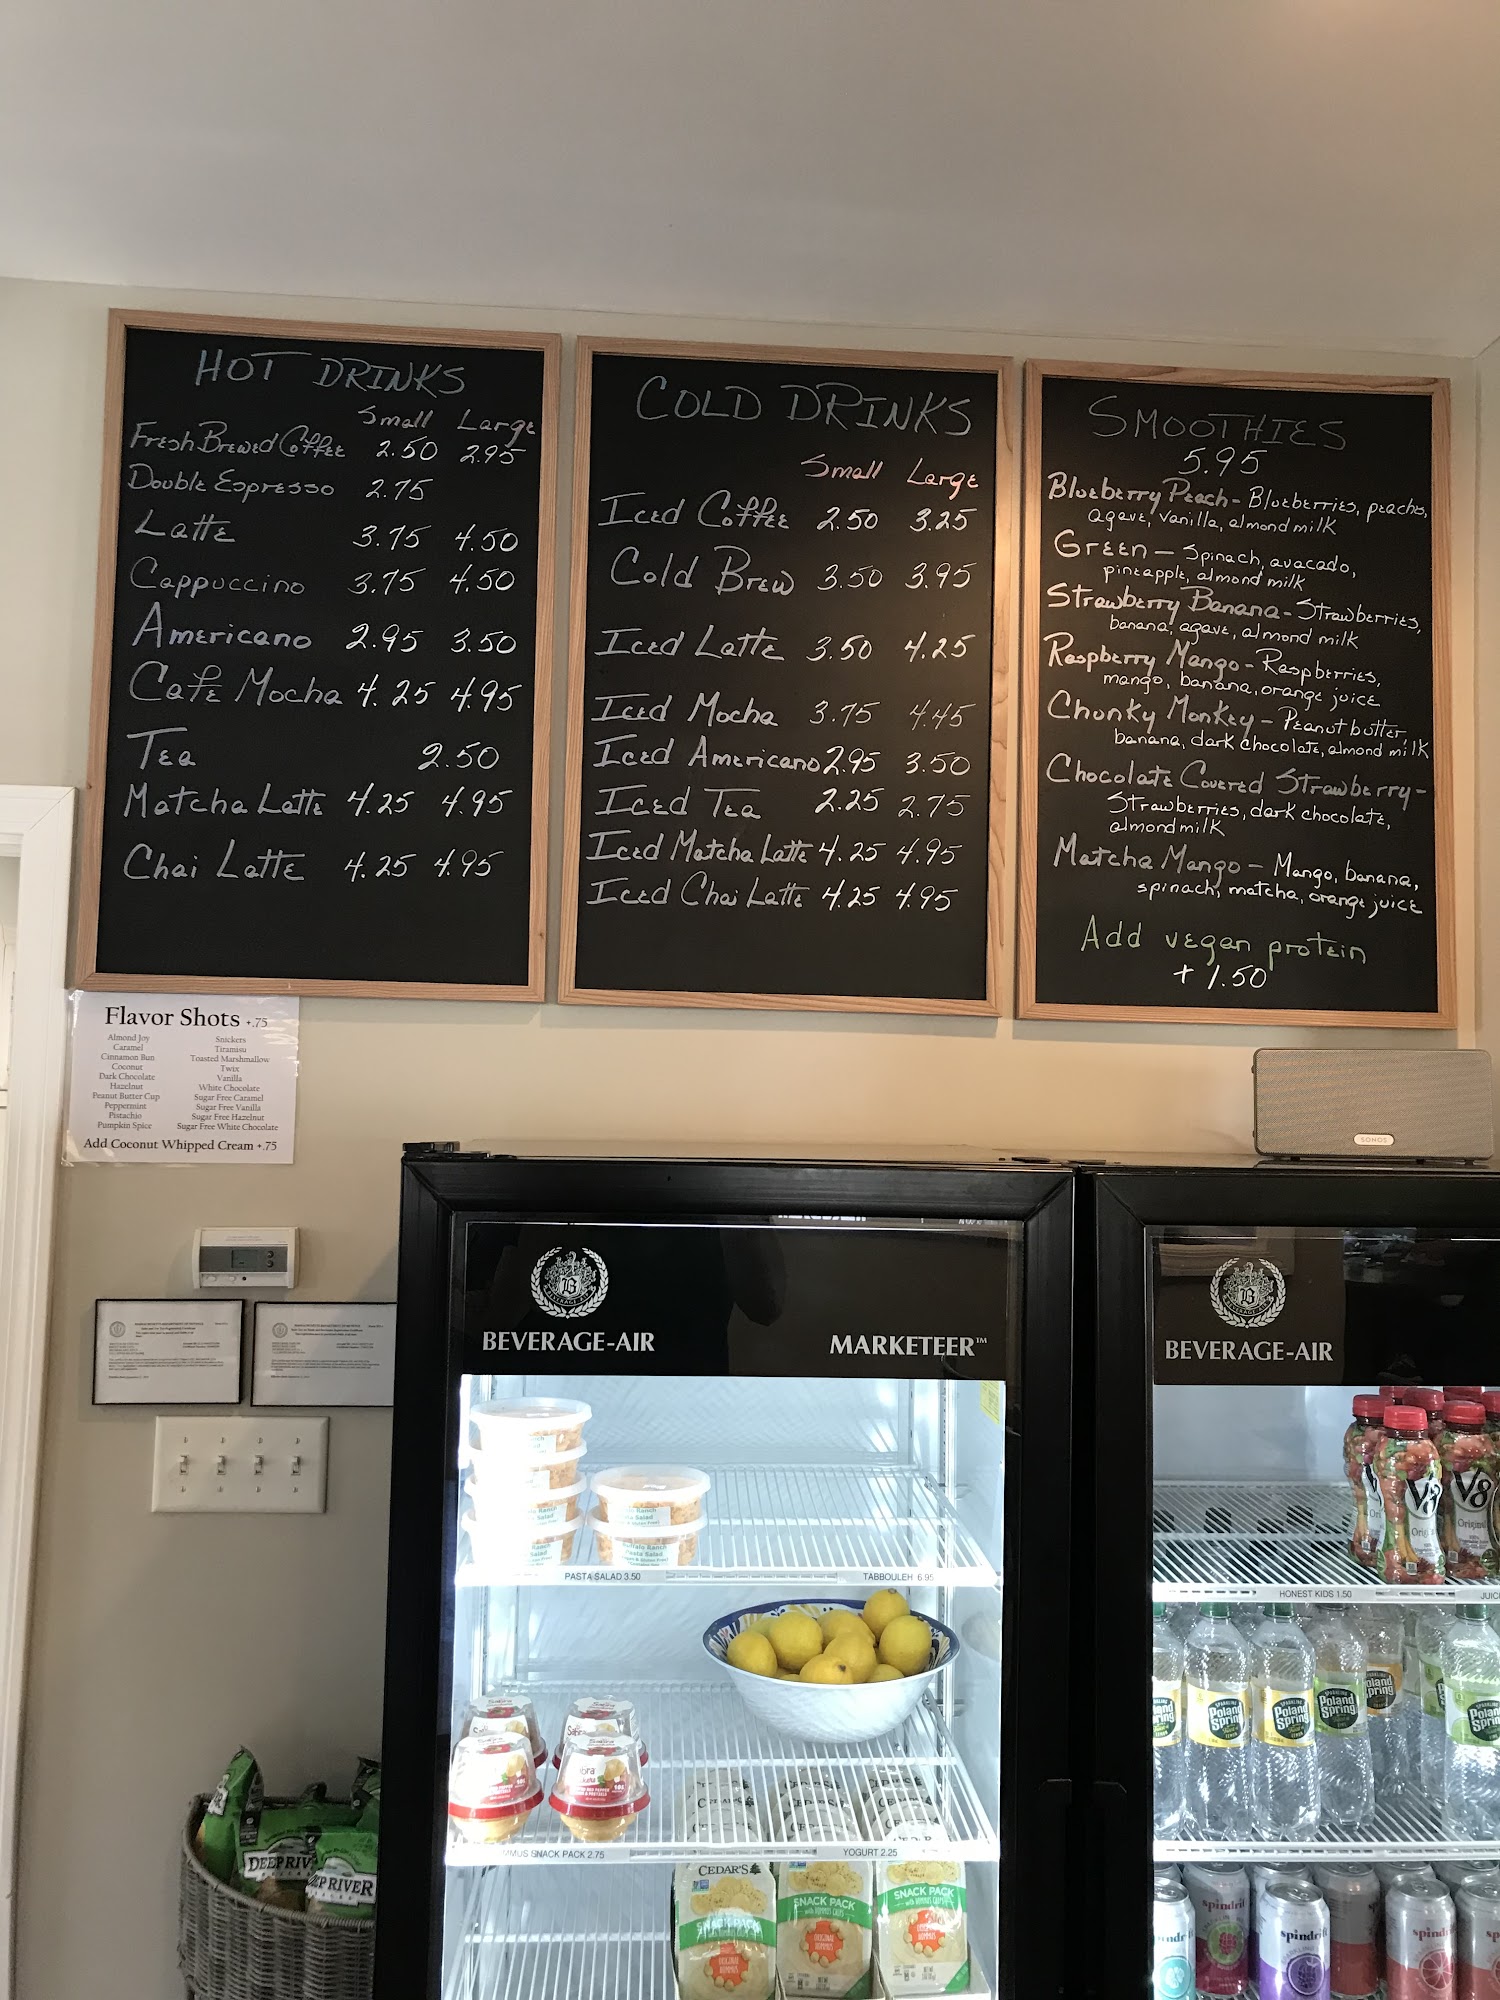 HOT DRINKS
Small Large
Fresh Brewed Coffee 2.50 2.95
Double Espresso 2.75
Latte 3.75 4.50
Cappuccino 3.75 4.50
Americano 2.95 3.50
Cafe Mocha 4.25 4.95
Tea 2.50
Matcha Latte 4.25 4.95
Chai Latte 4.25 4.95
COLD DRINKS
Small Large
Iced Coffee 2.50 3.25
Cold Brew 3.50 3.95
Iced Latte 3.50 4.25
Iced Mocha 3.75 4.45
Iced Americano 2.95 3.50
Iced Tea 2.25 2.75
Iced Matcha Latte 4.25 4.95
Iced Chai Latte 4.25 4.95
SMOOTHIES
5.95
Blueberry Peach - Blueberries, peaches,
agave, vanilla, almond milk
Green - Spinach, avacado,
pineapple, almond milk
Strawberry Banana - Strawberries,
banana, agave, almond milk
Raspberry Mango - Raspberries,
mango, banana, orange juice
Chunky Monkey - Peanut butter,
banana, dark chocolate, almond milk
Chocolate Covered Strawberry -
Strawberries, dark chocolate,
almond milk
Matcha Mango - Mango, banana,
spinach, matcha, orange juice
Add vegan protein
+ 1.50
Flavor Shots +.75
Almond Joy
Caramel
Cinnamon Bun
Coconut
Dark Chocolate
Hazelnut
Peanut Butter Cup
Peppermint
Pistachio
Pumpkin Spice
Snickers
Tiramisu
Toasted Marshmallow
Twix
Vanilla
White Chocolate
Sugar Free Caramel
Sugar Free Vanilla
Sugar Free Hazelnut
Sugar Free White Chocolate
Add Coconut Whipped Cream +.75
SONOS
B
BEVERAGE-AIR
BEVERAGE-AIR MARKETEER™
B
BEVERAGE-AIR
BEVERAGE-AIR
Buffalo Ranch
Pasta Salad
PASTA SALAD 3.50 TABBOULEH 6.95
V8
Original
V8
Original
HONEST KIDS 1.50
SPARKLING
Poland
Spring
LEMON
SPARKLING
Poland
Spring
Poland
Spring
Poland
Spring
Poland
Spring
SNACK PACK 2.75 YOGURT 2.25
CEDAR'S
SNACK PACK
ORIGINAL
HOMMUS
SNACK PACK
ORIGINAL
HOMMUS
SNACK PACK
ORIGINAL
HOMMUS
DEEP RIV
EP RIVER
spindrift
spindrift